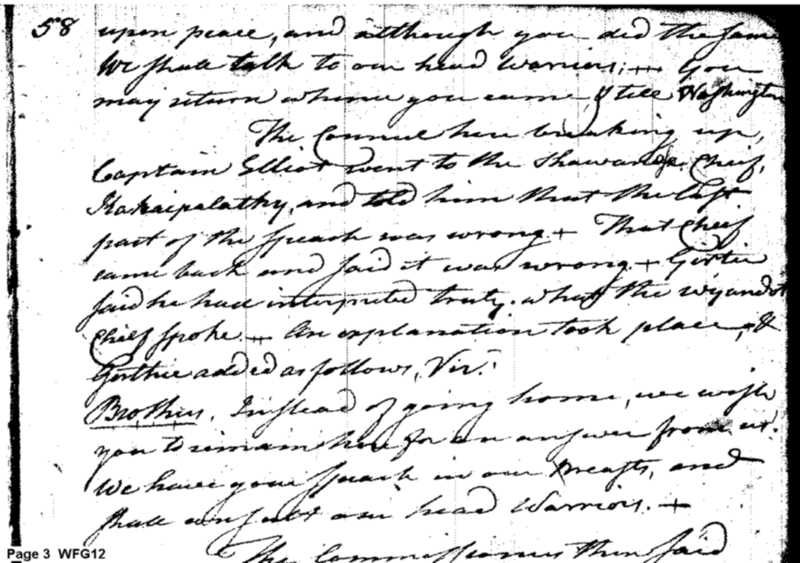 58 upon peace, and although you did the same
We shall talk to our head Warriors; + You
may return whence you came & tell Washington
The Council here breaking up,
Captain Elliot went to the Shawanoe Chief,
Kakaipalathy, and told him that the last
part of the Speach was wrong + That Chief
came back and said it was wrong + Girtie
said he had interpreted truly what the Wyandot
Chief spoke. + An explanation took place, &
Girthie added as follows, Viz.:
Brothers, Instead of going home, we wish
you to remain here for an answer from us.
We have your speach in our breasts, and
shall consult our head Warriors. +
The Commissioners then said
Page 3 WFG12